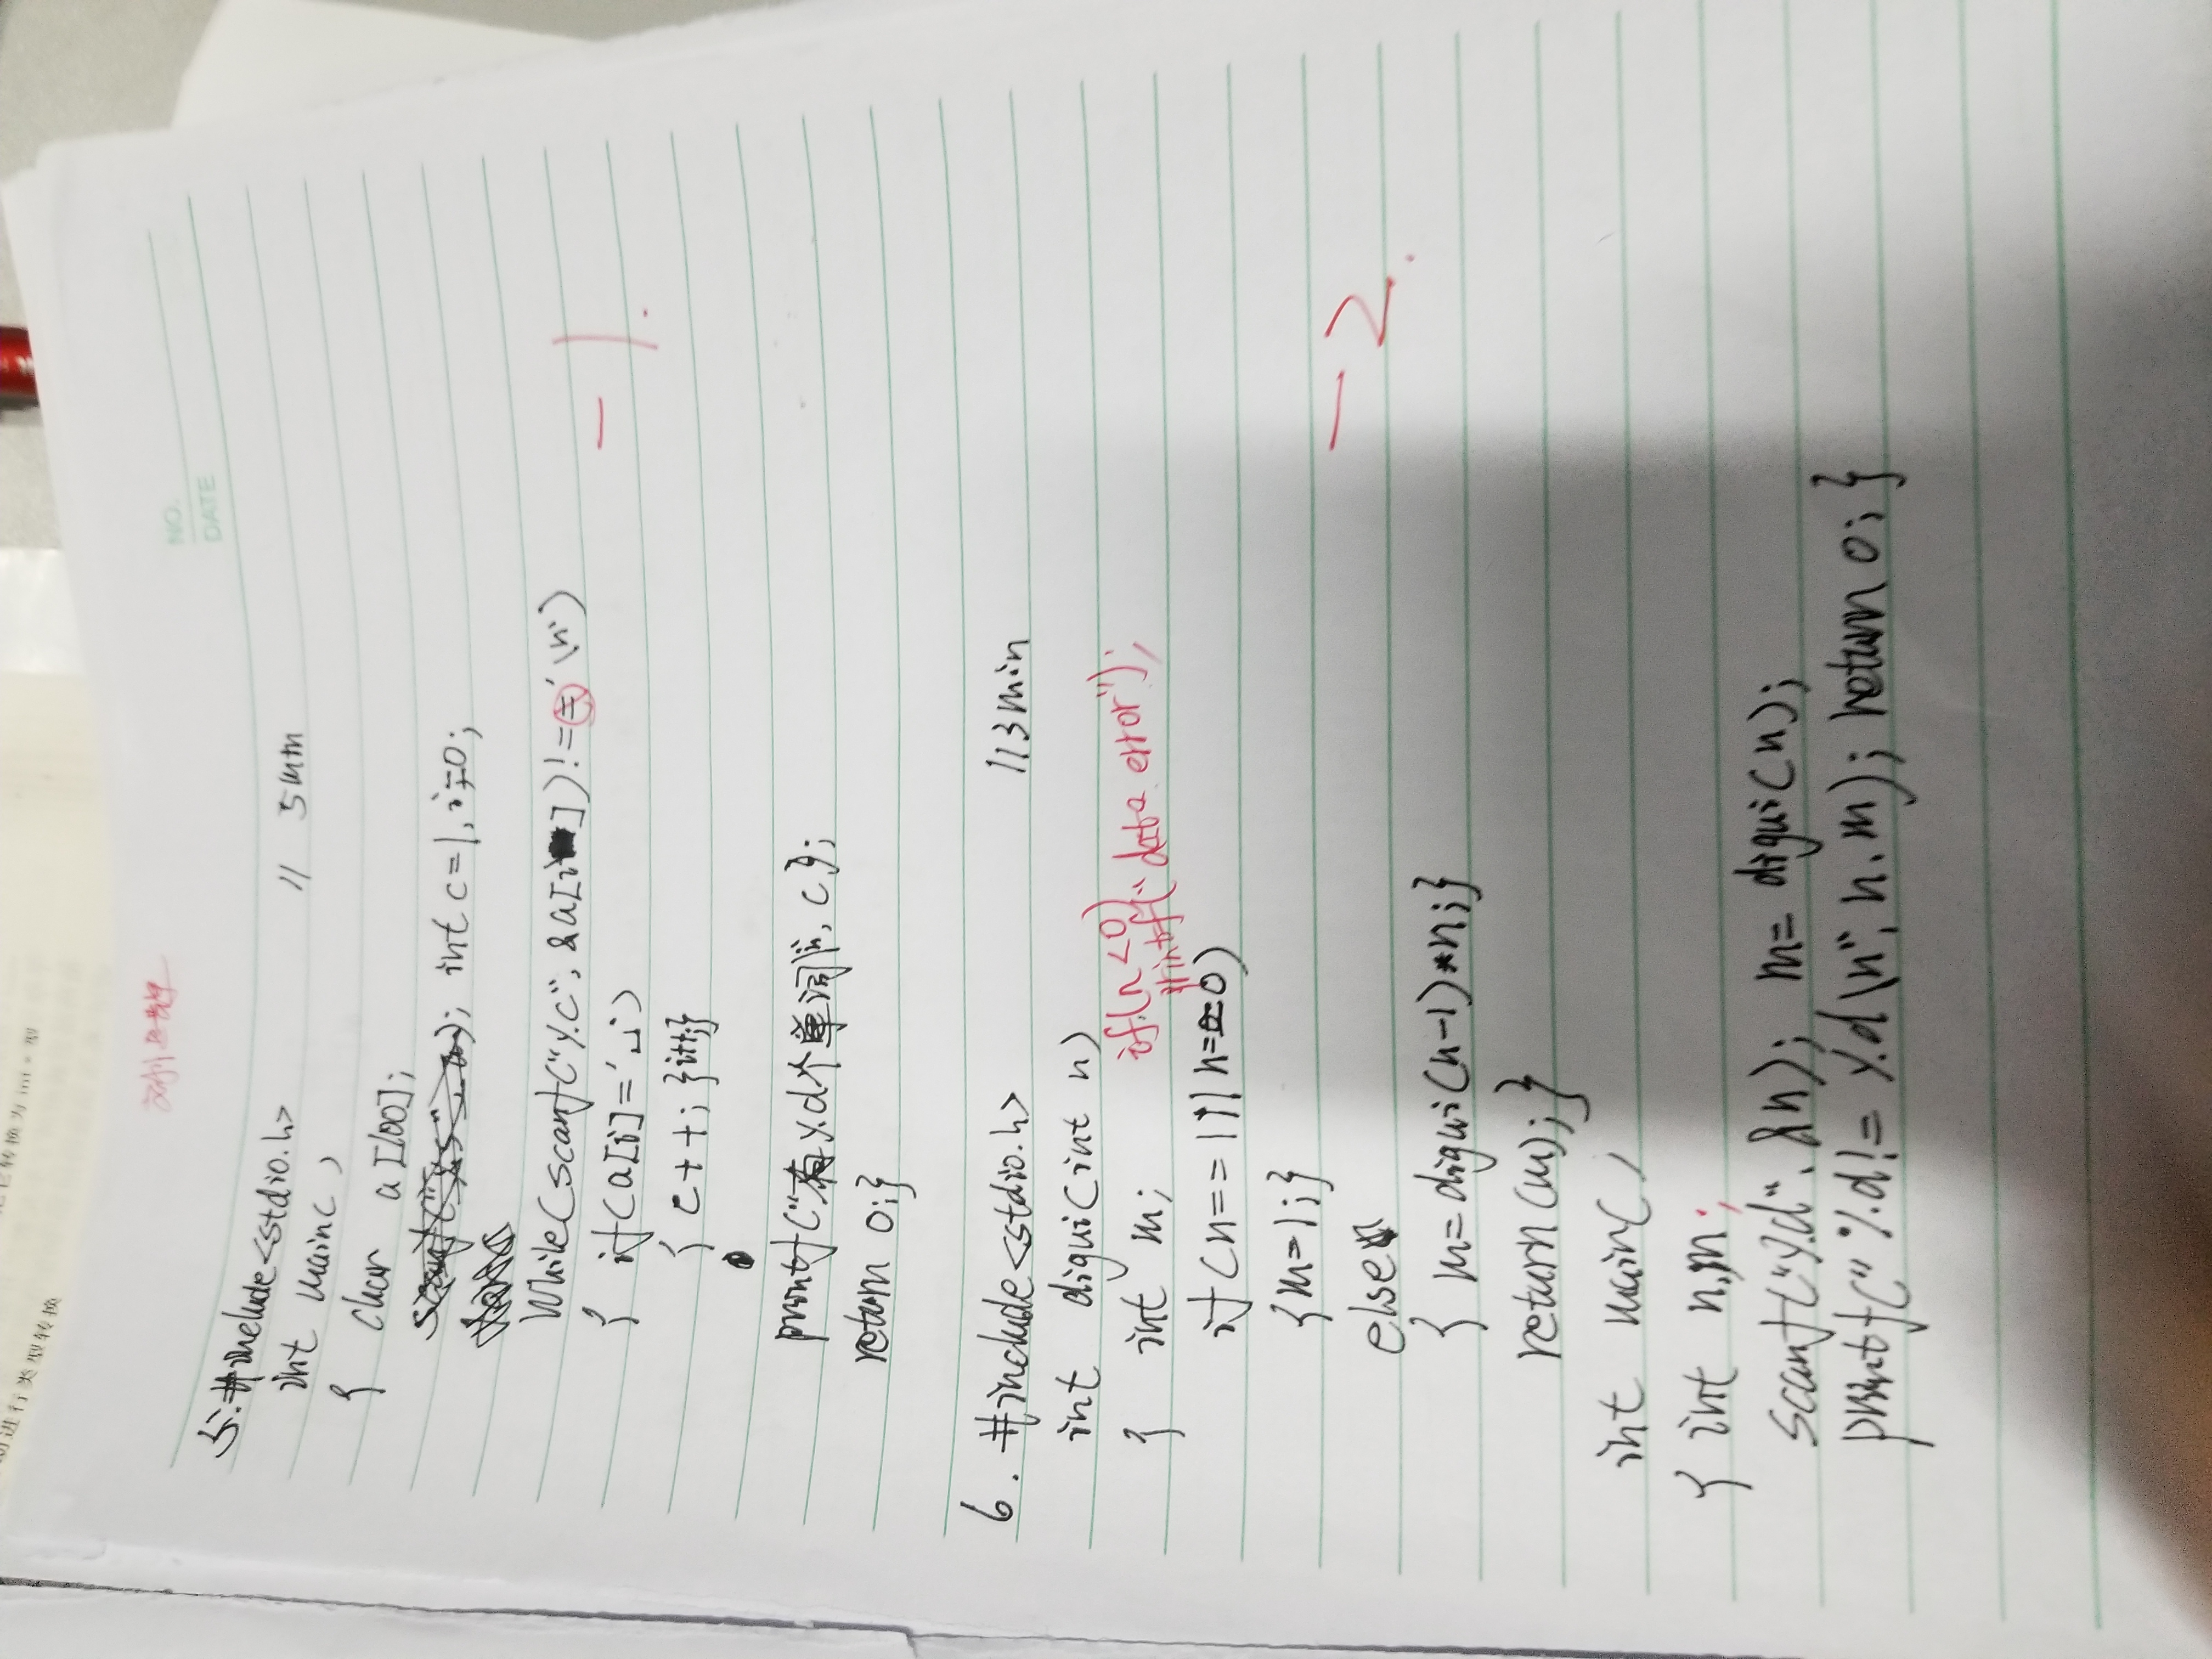 进行类型转换
转换为 int * 型
NO.
DATE
5. #include<stdio.h>
// 5min
int main()
{ char a[100];
int c=1, i=0;
while(scanf("%c", &a[i])!==' \n')
-1.
{ if(a[i]='␣')
{ c++; }i++;}
printf("有%d个单词\n", c);
return 0;}
6. #include<stdio.h>
//3min
int digui(int n)
{ int m;
if(n<0)
printf("data error");
if(n==1||n==0)
{m=1;}
-2.
else
{ m=digui(n-1)*n;}
return(m);}
int main()
{ int n,m;
scanf("%d", &n); m= digui(n);
printf("%d!= %d\n", n, m); return 0; }